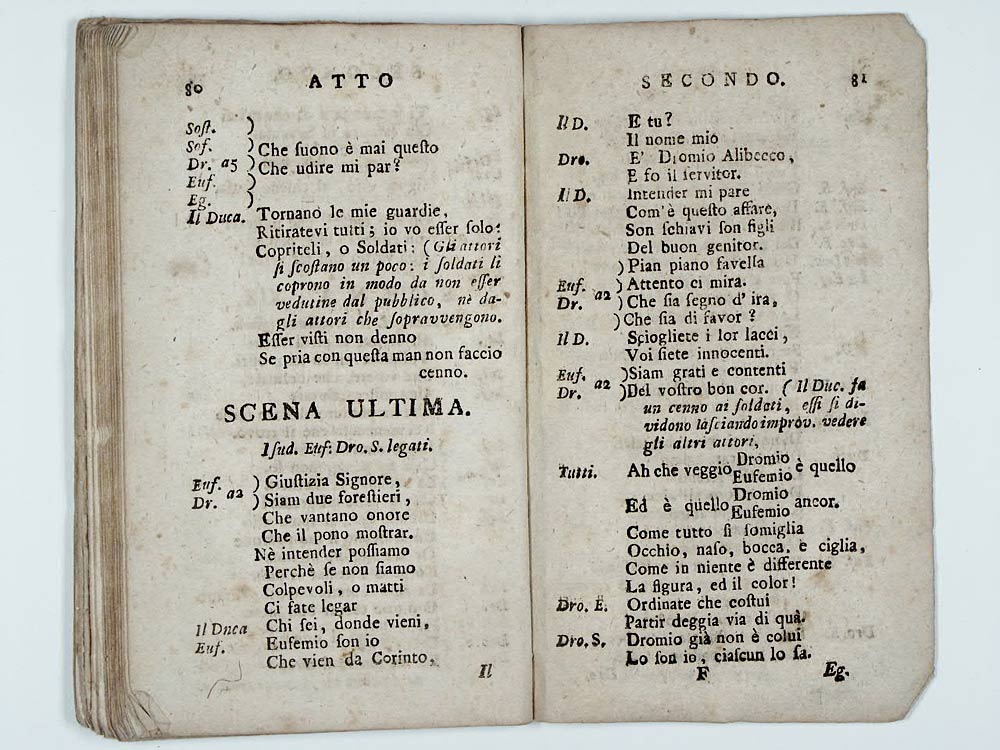 80 ATTO
Soſt. )
Sof. ) Che ſuono è mai queſto
Dr. a5 ) Che udire mi par?
Euf. )
Eg. )
Il Duca. Tornano le mie guardie,
Ritiratevi tutti; io vo eſſer ſolo:
Copriteli, o Soldati: ( Gli attori
ſi ſcoſtano un poco: i ſoldati li
coprono in modo da non eſſer
vedutine dal pubblico, nè da-
gli attori che ſopravvengono.
Eſſer viſti non denno
Se pria con queſta man non faccio
cenno.
SCENA ULTIMA.
I ſud. Euf: Dro. S. legati.
Euf. ) Giuſtizia Signore,
Dr. a2 ) Siam due foreſtieri,
Che vantano onore
Che il pono moſtrar.
Nè intender poſſiamo
Perchè ſe non ſiamo
Colpevoli, o matti
Ci fate legar
Il Dnca Chi ſei, donde vieni,
Euf. Eufemio ſon io
Che vien da Corinto,
Il
SECONDO. 81
Il D. E tu?
Il nome mio
Dro. E' Dromio Alibecco,
E fo il ſervitor.
Il D. Intender mi pare
Com'è queſto affare,
Son ſchiavi ſon figli
Del buon genitor.
) Pian piano favella
Euf. ) Attento ci mira.
Dr. a2 ) Che ſia ſegno d' ira,
) Che ſia di favor ?
Il D. Sciogliete i lor lacci,
Voi ſiete innocenti.
Euf. ) Siam grati e contenti
Dr. a2 ) Del voſtro bon cor. ( Il Duc. fa
un cenno ai ſoldati, eſſi ſi di-
vidono laſciando improv. vedere
gli altri attori,
Tutti. Ah che veggio Dromio Eufemio è quello
Ed è quello Dromio Eufemio ancor.
Come tutto ſi ſomiglia
Occhio, naſo, bocca. e ciglia,
Come in niente è differente
La figura, ed il color!
Dro. E. Ordinate che coſtui
Partir deggia via di quà.
Dro. S. Dromio già non è colui
Lo ſon io, ciaſcun lo ſa.
F Eg.